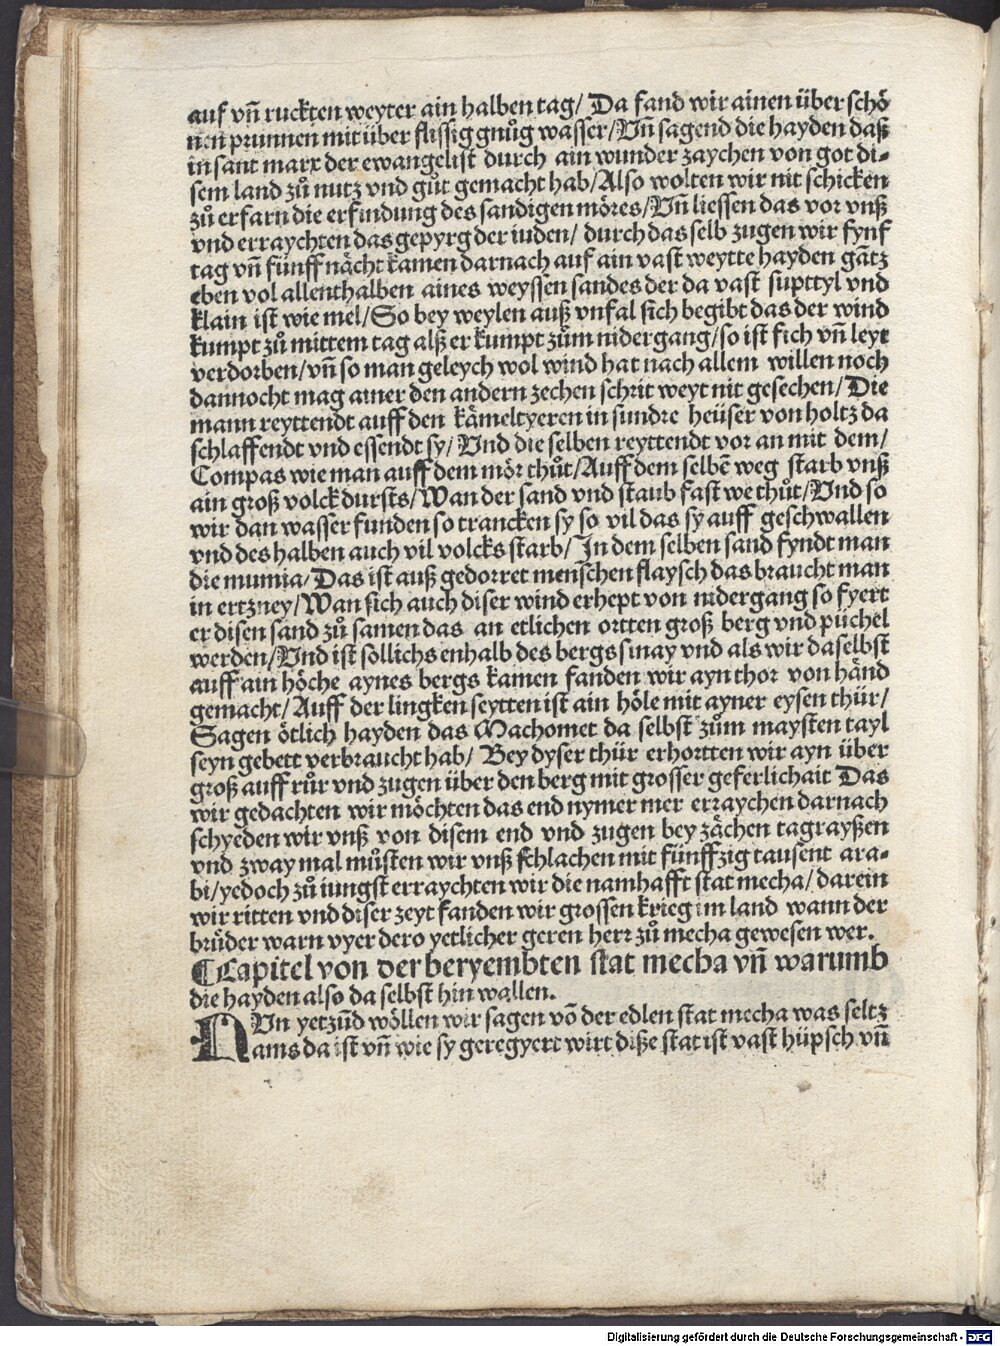 auf vn̄ ruckten weyter ain halben tag/ Da fand wir ainen über schö
nen prunnen mit über flissig gnůg wasser/Vn̄ sagend die hayden daß
in sant marx der ewangelist durch ain wunder zaychen von got di-
sem land zů nutz vnd gůt gemacht hab/Also wolten wir nit schicken
zů erfarn die erfindung des sandigen möres/Vn̄ liessen das vor vnß
vnd erraychten das gepyrg der iuden/ durch das selb zugen wir fynf
tag vn̄ fünff nächt kamen darnach auf ain vast weytte hayden gātz
eben vol allenthalben aines weyssen sandes der da vast supttyl vnd
klain ist wie mel/So bey weylen auß vnfal sich begibt das der wind
kumpt zů mittem tag alß er kumpt zům nidergang/so ist sich vn̄ leyt
verdorben/vn̄ so man geleych wol wind hat nach allem willen noch
dannocht mag ainer den andern zechen schrit weyt nit gesechen/ Die
mann reyttendt auff den kämeltyeren in sundre heüser von holtz da
schlaffendt vnd essendt sy/ Vnd die selben reyttendt vor an mit dem/
Compas wie man auff dem mör thůt/Auff dem selbē weg starb vnß
ain groß volck dursts/Wan der sand vnd staub fast we thůt/Vnd so
wir dan wasser funden so trancken sy so vil das sy auff geschwallen
vnd des halben auch vil volcks starb/In dem selben sand fyndt man
die mumia/Das ist auß gedorret menschen flaysch das braucht man
in ertzney/Wan sich auch diser wind erhept von nidergang so fyert
er disen sand zů samen das an etlichen ortten groß berg vnd püchel
werden/Vnd ist söllichs enhalb des bergs sinay vnd als wir daselbst
auff ain höche aynes bergs kamen fanden wir ayn thor von händ
gemacht/Auff der lingken seytten ist ain höle mit ayner eysen thür/
Sagen ötlich hayden das Machomet da selbst zům maysten tayl
seyn gebett verbraucht hab/ Bey dyser thür erhortten wir ayn über
groß auff růr vnd zugen über den berg mit grosser geferlichait Das
wir gedachten wir möchten das end nymer mer erraychen darnach
schyeden wir vnß von disem end vnd zugen bey zächen tagrayßen
vnd zway mal můsten wir vnß schlachen mit fünffzig tausent ara-
bi/yedoch zů iungst erraychten wir die namhafft stat mecha/darein
wir ritten vnd diser zeyt fanden wir grossen krieg im land wann der
brüder warn vyer dero yetlicher geren herr zů mecha gewesen wer.
¶Capitel von der beryembten stat mecha vn̄ warumb
die hayden also da selbst hin wallen.
NVn yetzūd wöllen wir sagen vō der edlen stat mecha was seltz
ams da ist vn̄ wie sy geregyert wirt diße stat ist vast hüpsch vn̄
Digitalisierung gefördert durch die Deutsche Forschungsgemeinschaft - DFG